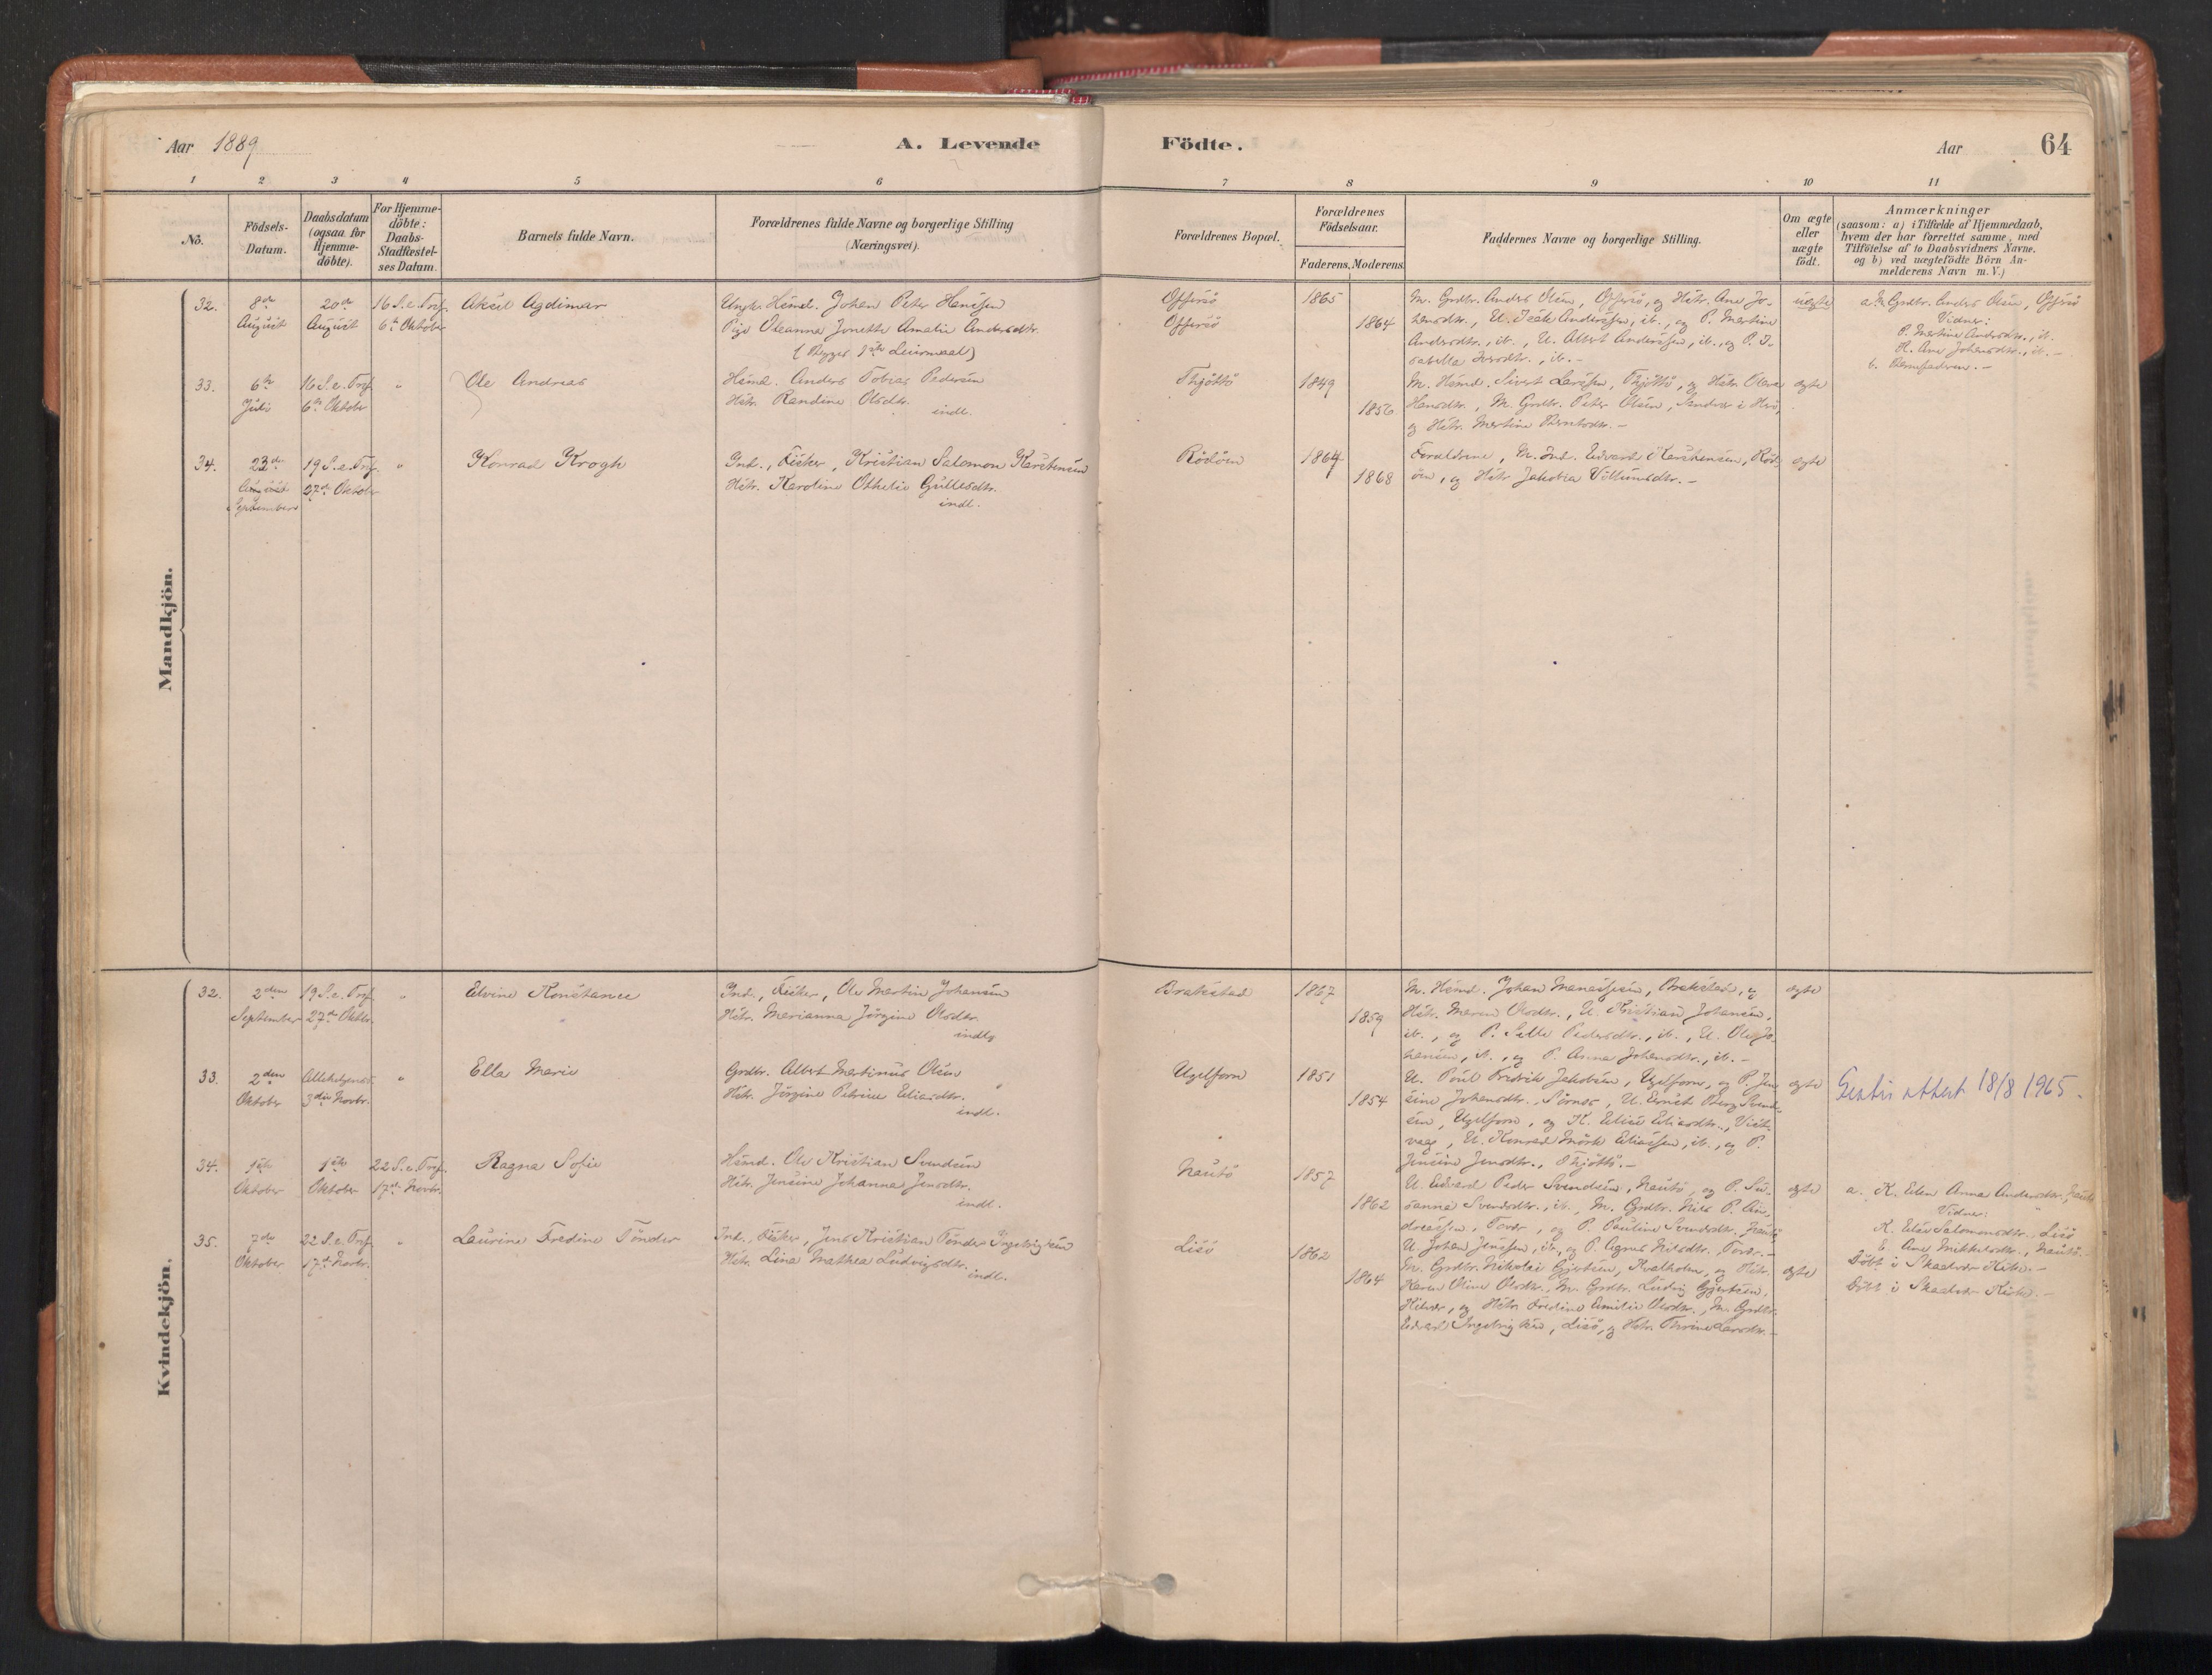 Aar 1889
A. Levende
Födte.
Aar
64
1 2 3 4 5 6 7 8 9 10 11
No.
Födsels-
Datum.
Daabsdatum
(ogsaa for
Hjemme-
döbte).
For Hjemme-
döbte:
Daabs-
Stadfæstel-
ses Datum.
Barnets fulde Navn.
Forældrenes fulde Navne og borgerlige Stilling
(Næringsvei).
Forældrenes Bopæl.
Forældrenes
Födselsaar.
Faderens. Moderens.
Faddernes Navne og borgerlige Stilling.
Om ægte
eller
uægte
födt.
Anmærkninger
(saasom: a) i Tilfælde af Hjemmedaab,
hvem der har forrettet samme, med
Tilföielse af to Daabsvidners Navne,
og b) ved uægtefödte Börn An-
melderens Navn m. V.)
Mandkjön.
32.
8de
August
20de
August
16 S. e. Tref.
6te Oktober
Aksel Agdimar
Ungk. Hsmd. Johan Peter Hanssen
Pige Oleanna Jonette Amalie Andersdtr.
(Begges 1ste Leiermaal)
Offersö
Offersö
1865
1864
M. Grdbr. Anders Olsen, Offersö, og Hstr. Ane Jo-
hansdtr., U. Isak Anderssen, ib., og P. Martine
Andersdtr., ib., U. Albert Anderssen, ib., og P. I-
sabella Iversdtr., ib. –
uægte
a. M. Grdbr. Anders Olsen, Offersö
Vidner:
P. Martine Andersdtr., ib.
K. Ane Johansdtr., ib. –
b. Barnefaderen. –
33.
6te
Juli
16 S. e. Tref.
6te Oktober
"
Ole Andreas
Hsmd. Anders Tobias Pedersen
Hstr. Randine Olsdtr.
indl.
Thjöttö
1849
1856
M. Hsmd. Sivert Larssen, Thjöttö, og Hstr. Olava
Hansdtr., M. Grdbr. Peter Olsen, Sandvær i Herö,
og Hstr. Martine Berntsdtr. –
ægte
34.
23de
August
September
19 S. e. Tref.
27de Oktober
"
Konrad Krogh
Ind., Fisker, Kristian Salomon Karstensen
Hstr. Karoline Othelie Gullesdtr.
indl.
Rödöen
1864
1868
Forældrene, M. Ind. Edvard Karstensen, Röd-
öen, og Hstr. Jakobia Villumsdtr. –
ægte
Kvindekjön.
32.
2den
September
19 S. e. Tref.
27de Oktbr.
"
Elvine Konstance
Ind., Fisker, Ole Martin Johansen
Hstr. Marianna Jörgine Olsdtr.
indl.
Brakstad
1867
1859
M. Hsmd. Johan Manassesen, Brakstad, og
Hstr. Maren Olsdtr., U. Kristian Johansen,
ib., og P. Sille Pedersdtr., ib., U. Ole Jo-
hansen, ib., og P. Anna Johansdtr., ib. –
ægte
33.
2den
Oktober
Allehelgensd.
3die Novbr.
"
Ella Marie
Grdbr. Albert Martinus Olsen
Hstr. Jörgine Petrine Eliasdtr.
indl.
Ugelforn
1851
1854
U. Poul Fredrik Jakobsen, Ugelforn, og P. Jen-
sine Johansdtr., Sörnes, U. Ernst Berg Svend-
sen, Ugelforn, og K. Elise Eliasdtr., Vist-
vaag, U. Konrad Mörk Eliassen, ib., og P.
Jensine Jensdtr., Thjöttö. –
ægte
attest 18/8 1965.
34.
1ste
Oktober
1ste
Oktober
22 S. e. Tref.
17de Novbr.
Ragna Sofie
Hsmd. Ole Kristian Svendsen
Hstr. Jensine Johanna Jensdtr.
indl.
Nautö
1857
1862
U. Edvard Peder Svendsen, Nautö, og P. Su-
sanna Svendsdtr., ib., M. Grdbr. Nils P. An-
dreassen, Tovær, og P. Pauline Svendsdtr., Nautö
U. Johan Jenssen, ib., og P. Agnes Nilsdtr., Tovær. –
ægte
a. K. Elen Anna Andersdtr., Nautö
Vidner:
K. Elen Salomonsdtr., Lisö
E. Ane Mikkelsdtr., Nautö. –
Döbt i Skaalvær Kirke. –
35.
7de
Oktober
22 S. e. Tref.
17de Novbr.
"
Laurine Fredine Tönder
Ind., Fisker, Jens Kristian Tönder Ingebrigtsen
Hstr. Lina Mathea Ludvigsdtr.
indl.
Lisö
1862
1864
M. Grdbr. Nikolai Gjertsen, Kvalholm, og Hstr.
Karen Oline Olsdtr., M. Grdbr. Ludvig Gjertsen,
og Hstr. Fredine Emilie Olsdtr., M. Grdbr.
Edvard Ingebrigtsen, Lisö, og Hstr. Thrine Larsdtr. –
ægte
Döbt i Skaalvær Kirke. –